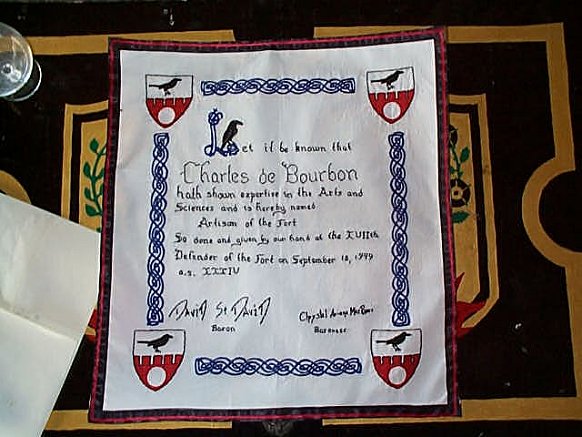 Let it be known that
Charles de Bourbon
hath shown expertise in the Arts and
Sciences and is hereby named
Artisan of the Fort
So done and given by our hand at the XVIIth
Defender of the Fort on September 18, 1999
a.s. XXXIV
David St David
Baron
Baroness